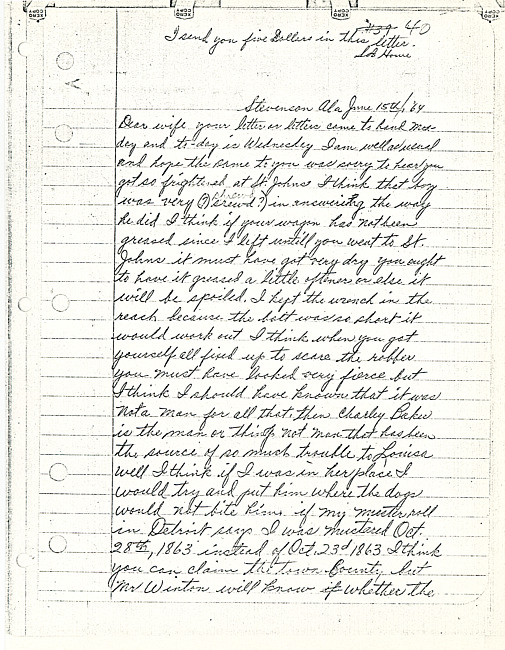 #39 40
I send you five Dollars in this letter.
Stevenson Ala June 15th/64
Dear wife your letter or letters came to hand Mon-
day and to-day is Wednesday I am well as usual
and hope the same to you was sorry to hear you
got so frightened at St. Johns I think that boy
was very (?) shrewd?) in answering the way
he did I think if your wagon has not been
greased since I left untill you went to St.
Johns it must have got very dry you ought
to have it greased a little oftener or else it
will be spoiled. I kept the wrench in the
reach because the bolt was so short it
would work out I think when you got
yourself all fixed up to scare the robber
you must have looked very fierce but
I think I should have known that it was
not a man for all that, then Charley Baker
is the man or thing not man that has been
the source of so much trouble to Louisa
well I think if I was in her place I
would try and put him where the dogs
would not bite him, if my muster roll
in Detroit says I was mustered Oct.
28th, 1863 instead of Oct. 23d 1863 I think
you can claim the Town Bounty but
Mr Winton will know if whether the